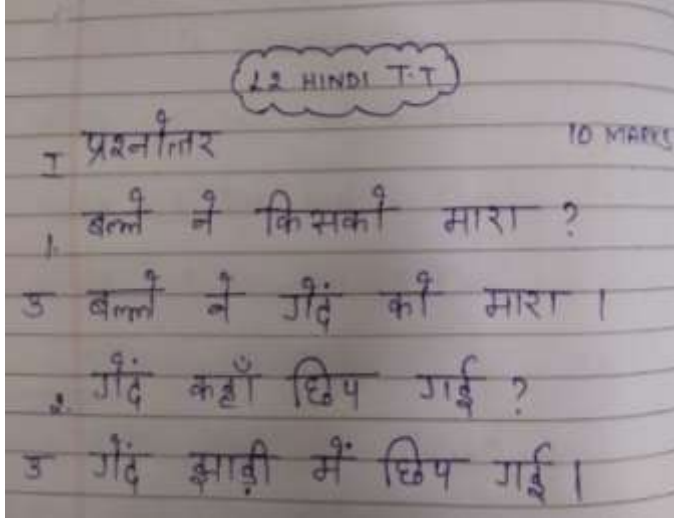 L2 HINDI T.T
I प्रश्नोत्तर 10 MARKS
1. बल्ले ने किसको मारा ?
उ बल्ले ने गेदं को मारा ।
2. गेंद कहाँ छिप गई ?
उ गेंद झाड़ी में छिप गई ।